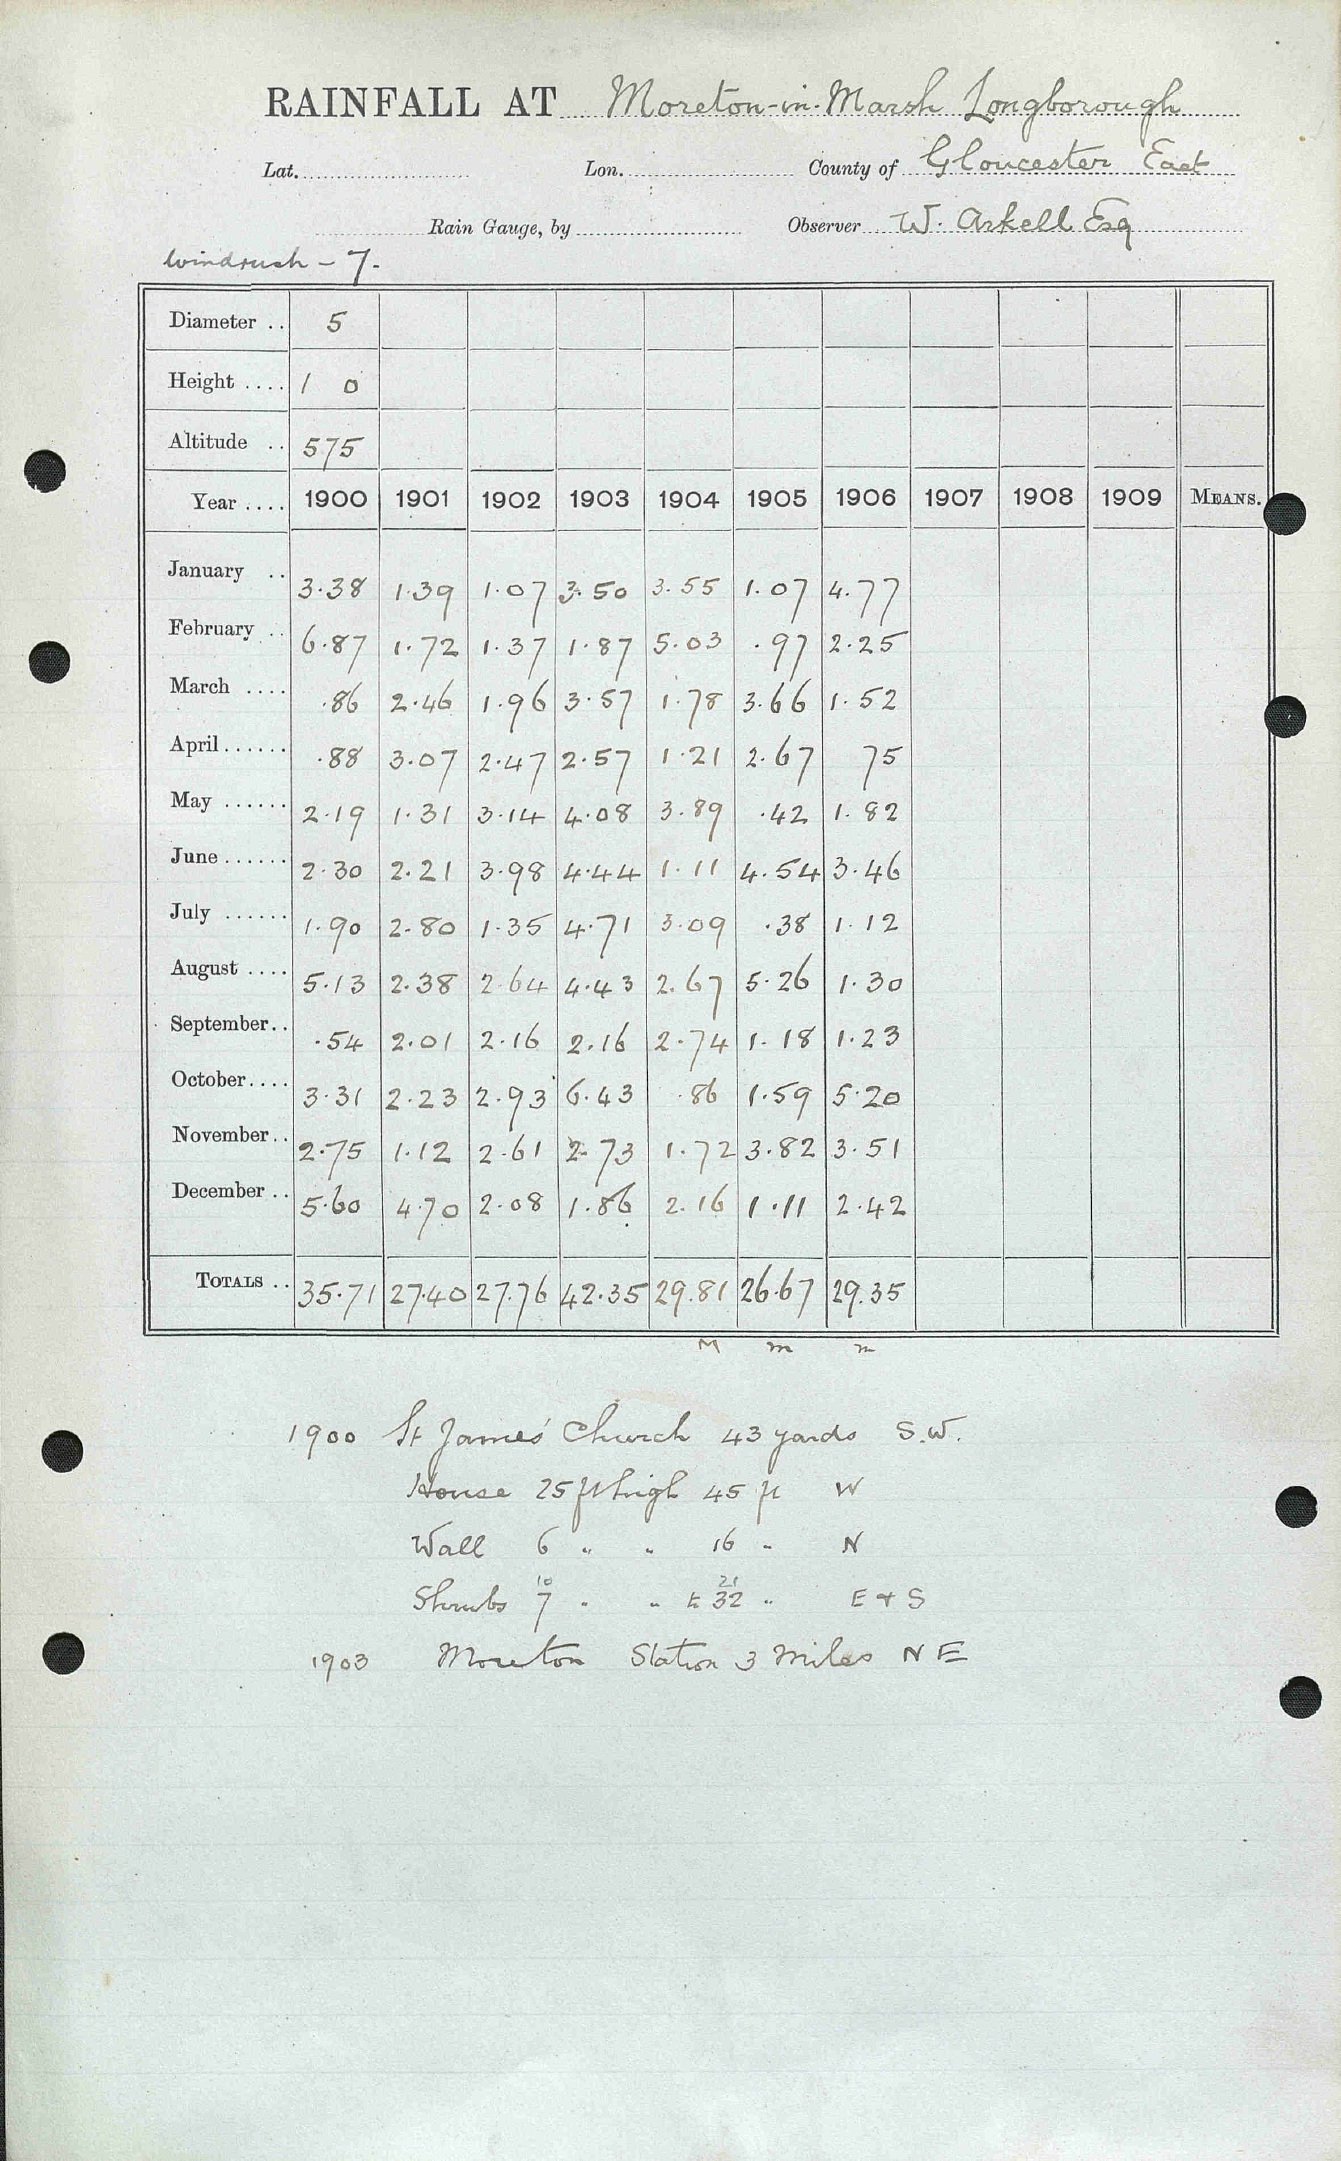 RAINFALL AT Moreton-in-Marsh Longborough
Lat. Lon. County of Gloucester East
Rain Gauge, by Observer W. Arkell Esq
Windrush - 7.
Diameter .. 5
Height .... 1 0
Altitude .. 575
Year .... 1900 1901 1902 1903 1904 1905 1906 1907 1908 1909 MEANS.
January .. 3.38 1.39 1.07 3.50 3.55 1.07 4.77
February .. 6.87 1.72 1.37 1.87 5.03 .97 2.25
March .... .86 2.46 1.96 3.57 1.78 3.66 1.52
April ...... .88 3.07 2.47 2.57 1.21 2.67 75
May ...... 2.19 1.31 3.14 4.08 3.89 .42 1.82
June ...... 2.30 2.21 3.98 4.44 1.11 4.54 3.46
July ...... 1.90 2.80 1.35 4.71 3.09 .38 1.12
August .... 5.13 2.38 2.64 4.43 2.67 5.26 1.30
September.. .54 2.01 2.16 2.16 2.74 1.18 1.23
October.... 3.31 2.23 2.93 6.43 .86 1.59 5.20
November.. 2.75 1.12 2.61 2.73 1.72 3.82 3.51
December .. 5.60 4.70 2.08 1.86 2.16 1.11 2.42
TOTALS .. 35.71 27.40 27.76 42.35 29.81 26.67 29.35
M m m
1900 St James' Church 43 yards S.W.
House 25 ft high 45 ft W
Wall 6 " " 16 " N
10 21
Shrubs 7 " " & 32 " E & S
1903 Moreton Station 3 Miles N E